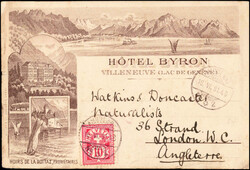 HÔTEL BYRON
VILLENEUVE (LAC DE GENÈVE)
Watkins & Doncaster
Naturalists
36 Strand
London. W.C.
Angleterre
10